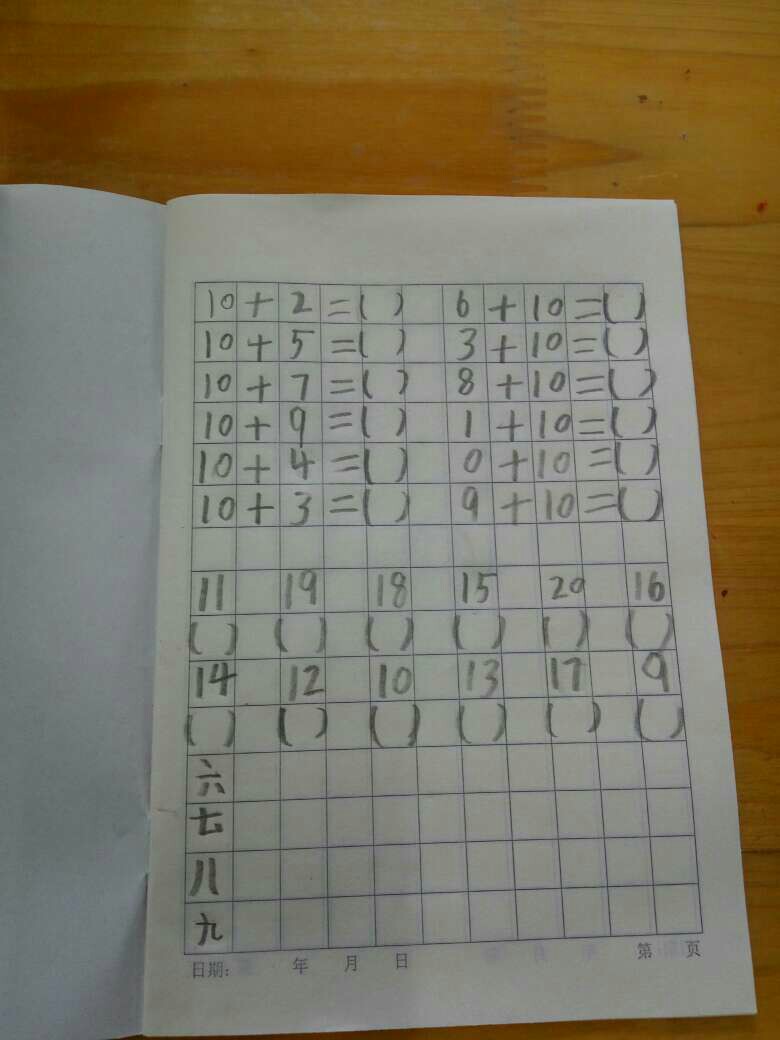 10+2=( ) 6+10=( )
10+5=( ) 3+10=( )
10+7=( ) 8+10=( )
10+9=( ) 1+10=( )
10+4=( ) 0+10=( )
10+3=( ) 9+10=( )
11 19 18 15 20 16
( ) ( ) ( ) ( ) ( ) ( )
14 12 10 13 17 9
( ) ( ) ( ) ( ) ( ) ( )
六
七
八
九
日期: 年 月 日 第 页